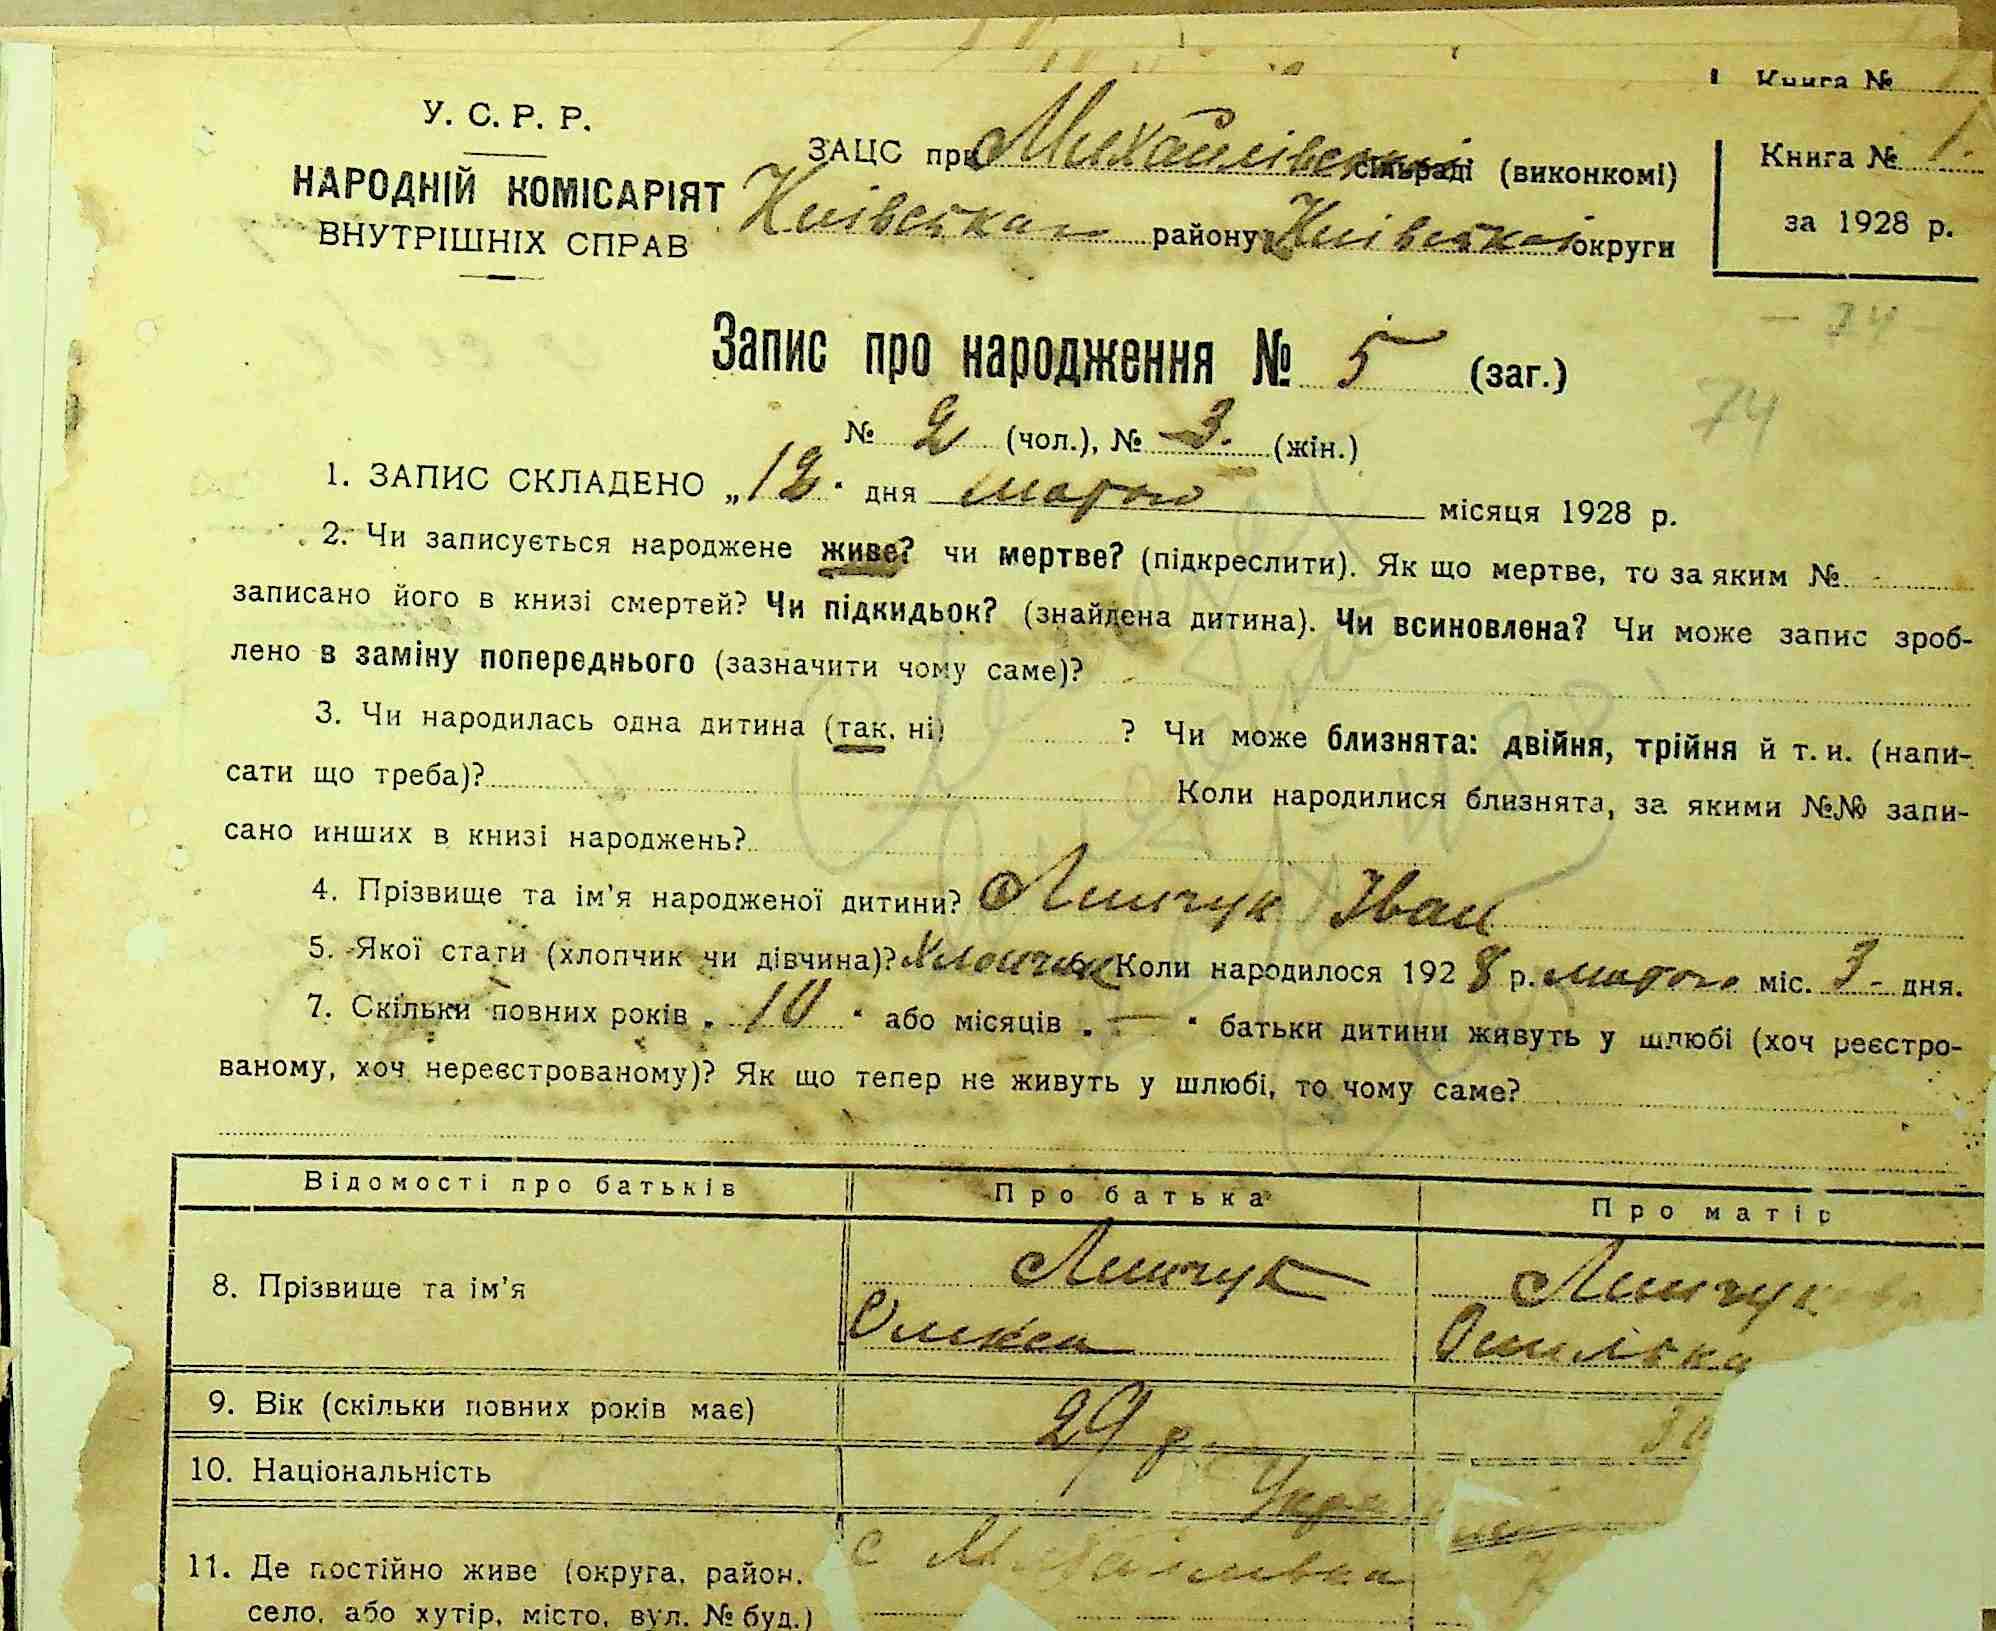 Книга №
У. С. Р. Р.
НАРОДНІЙ КОМІСАРІЯТ
ВНУТРІШНІХ СПРАВ
ЗАЦС при Михайлівській сільраді (виконкомі)
Київського району Київської округи
Книга № 1.
за 1928 р.
- 74 -
74
Запис про народження № 5 (заг.)
№ 2 (чол.), № 3. (жін.)
1. ЗАПИС СКЛАДЕНО „12" дня лютого місяця 1928 р.
2. Чи записується народжене живе? чи мертве? (підкреслити). Як що мертве, то за яким № -
записано його в книзі смертей? Чи підкидьок? (знайдена дитина). Чи всиновлена? Чи може запис зроб-
лено в заміну попереднього (зазначити чому саме)?
3. Чи народилась одна дитина (так, ні) ? Чи може близнята: двійня, трійня й т. и. (напи-
сати що треба)? Коли народилися близнята, за якими №№ запи-
сано инших в книзі народжень?
4. Прізвище та ім'я народженої дитини? Линчук Іван
5. Якої стати (хлопчик чи дівчина)? Хлопчик Коли народилося 1928 р. лютого міс. 3 - дня.
7. Скільки повних років „10" або місяців „—" батьки дитини живуть у шлюбі (хоч реєстро-
ваному, хоч нереєстрованому)? Як що тепер не живуть у шлюбі, то чому саме?
Відомості про батьків Про батька Про матір
8. Прізвище та ім'я Линчук Олекса
9. Вік (скільки повних років має) 29 р.
10. Національність
11. Де постійно живе (округа, район, с Михайлівка
село, або хутір, місто, вул. № буд.)